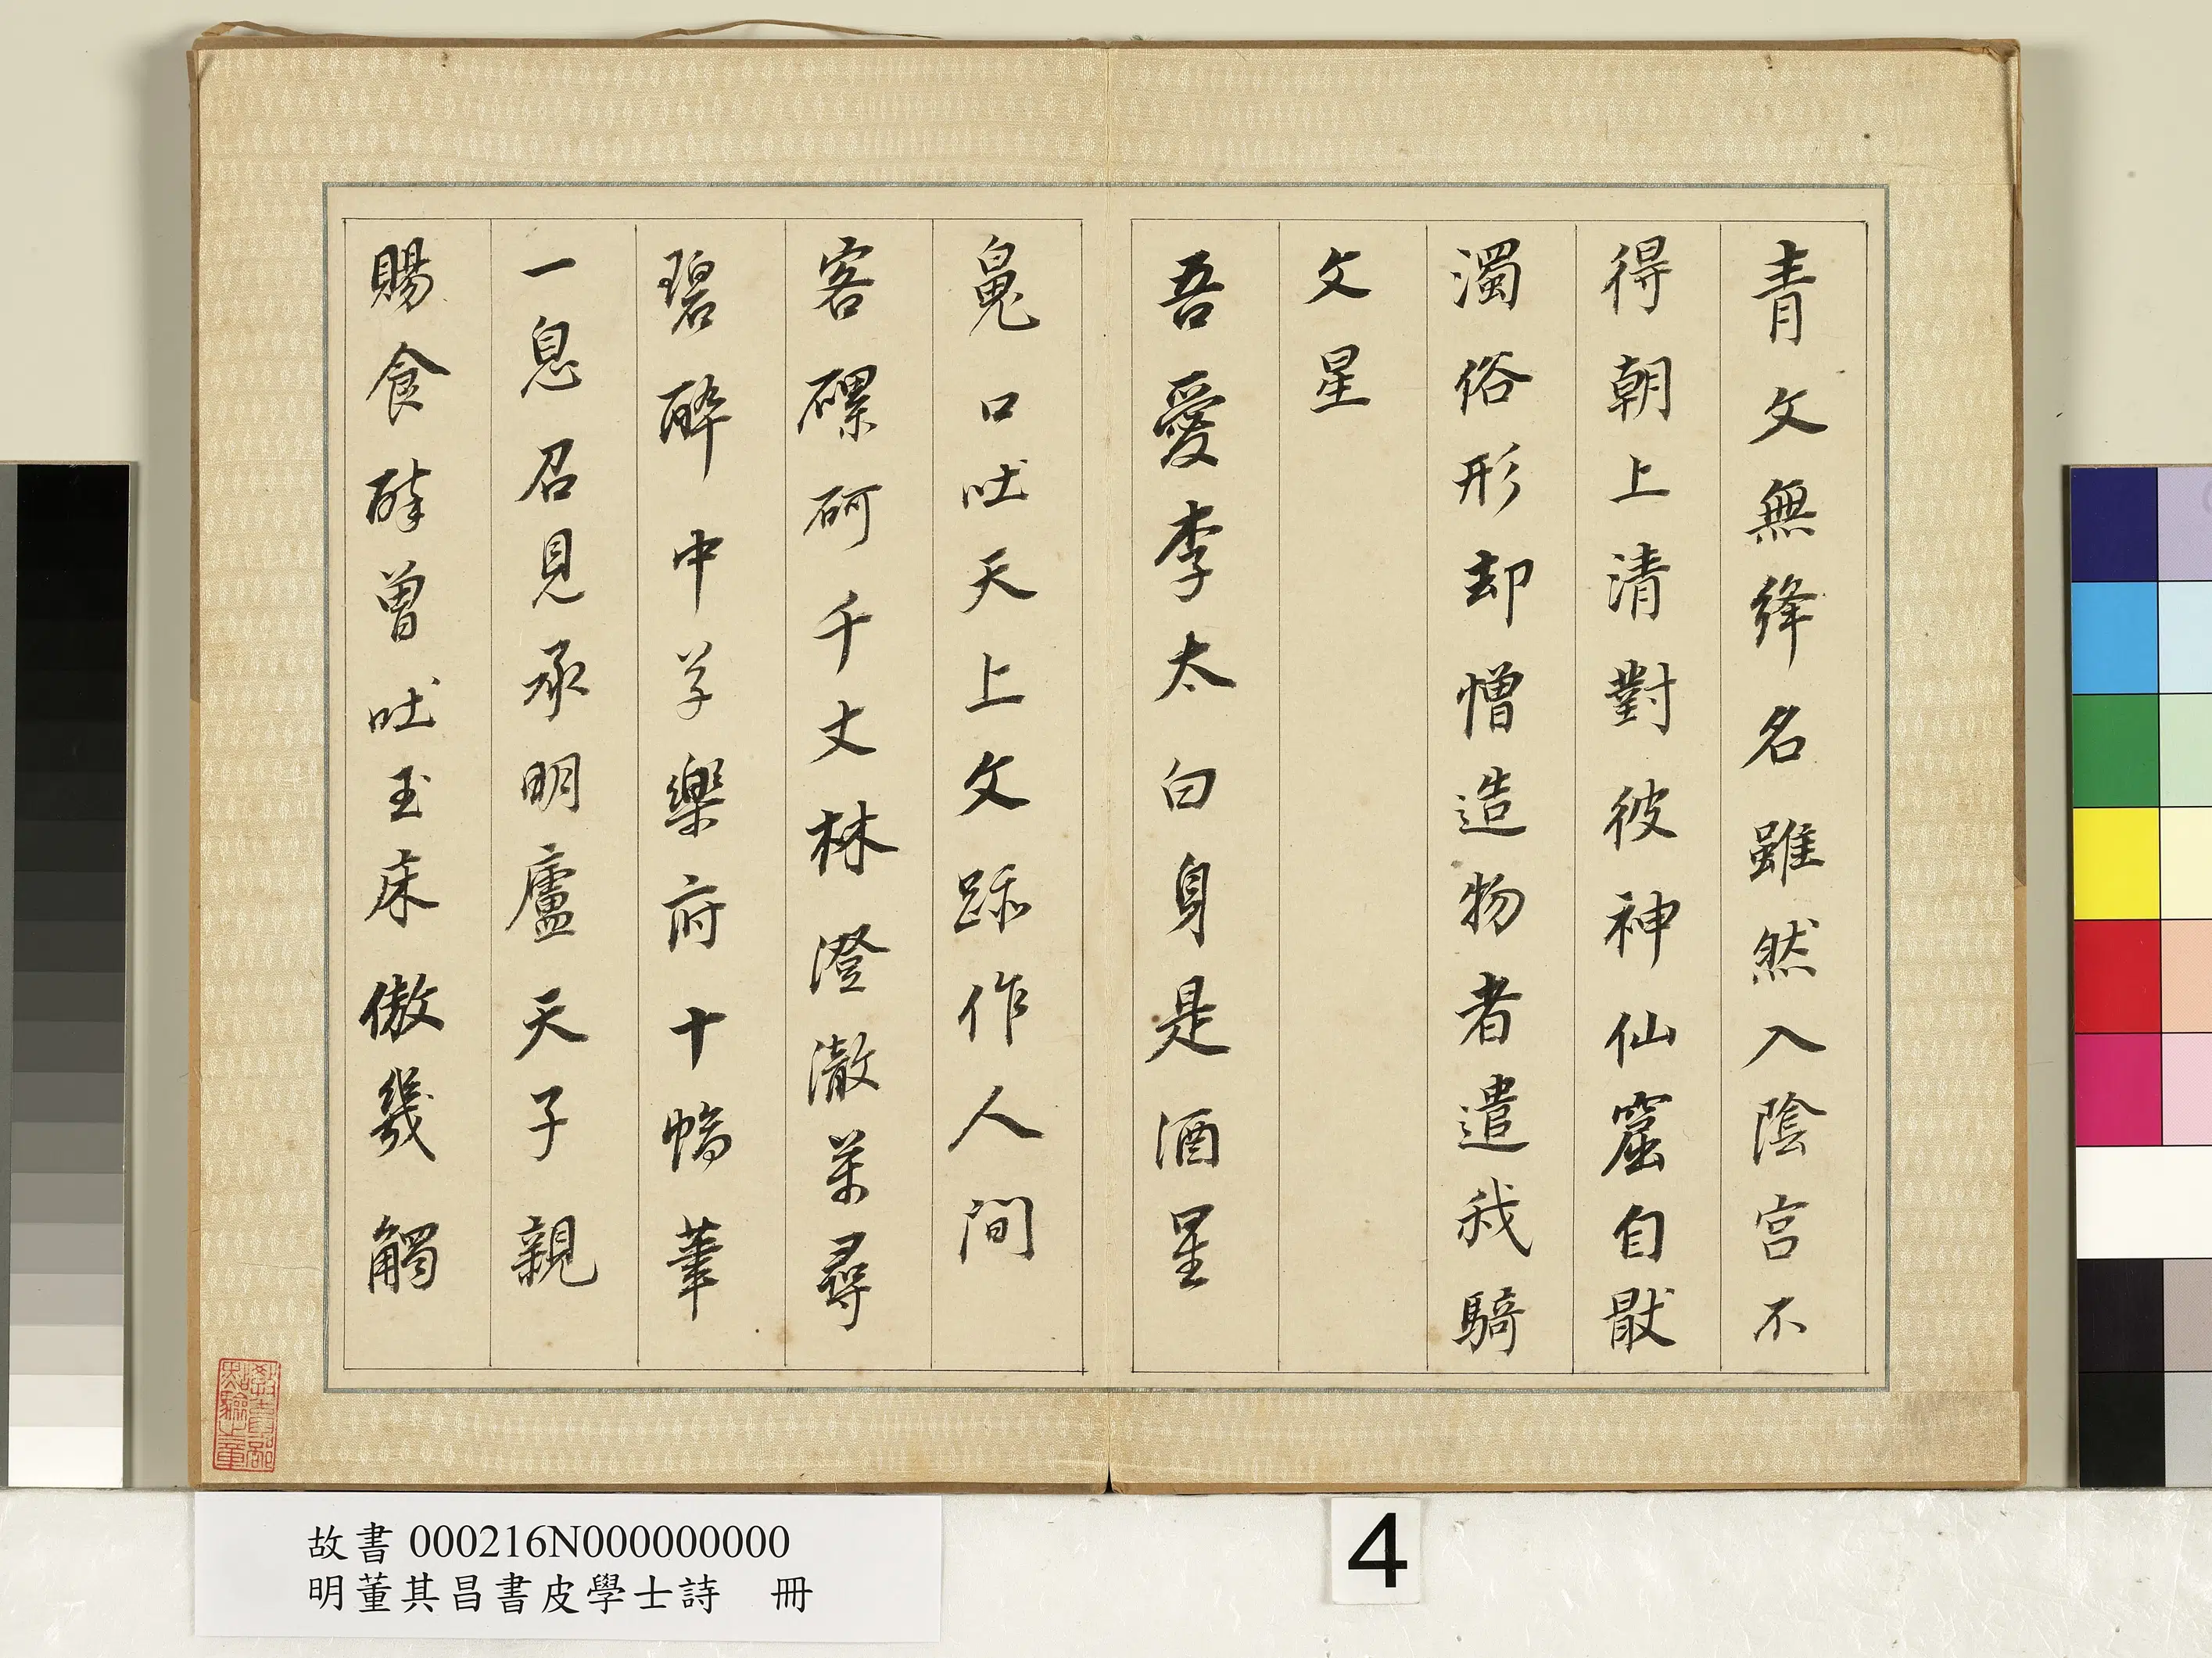 青文無絳名雖然入陰宮不
得朝上清對彼神仙窟自猒
濁俗形却憎造物者遣我騎
文星
吾愛李太白身是酒星
魄口吐天上文跡作人間
客磥砢千丈林澄澈萬尋
碧醉中草樂府十幅筆
一息召見承明廬天子親
賜食醉曾吐玉床傲幾觸
教育部點驗之章
故書 000216N000000000
明董其昌書皮學士詩 冊
4